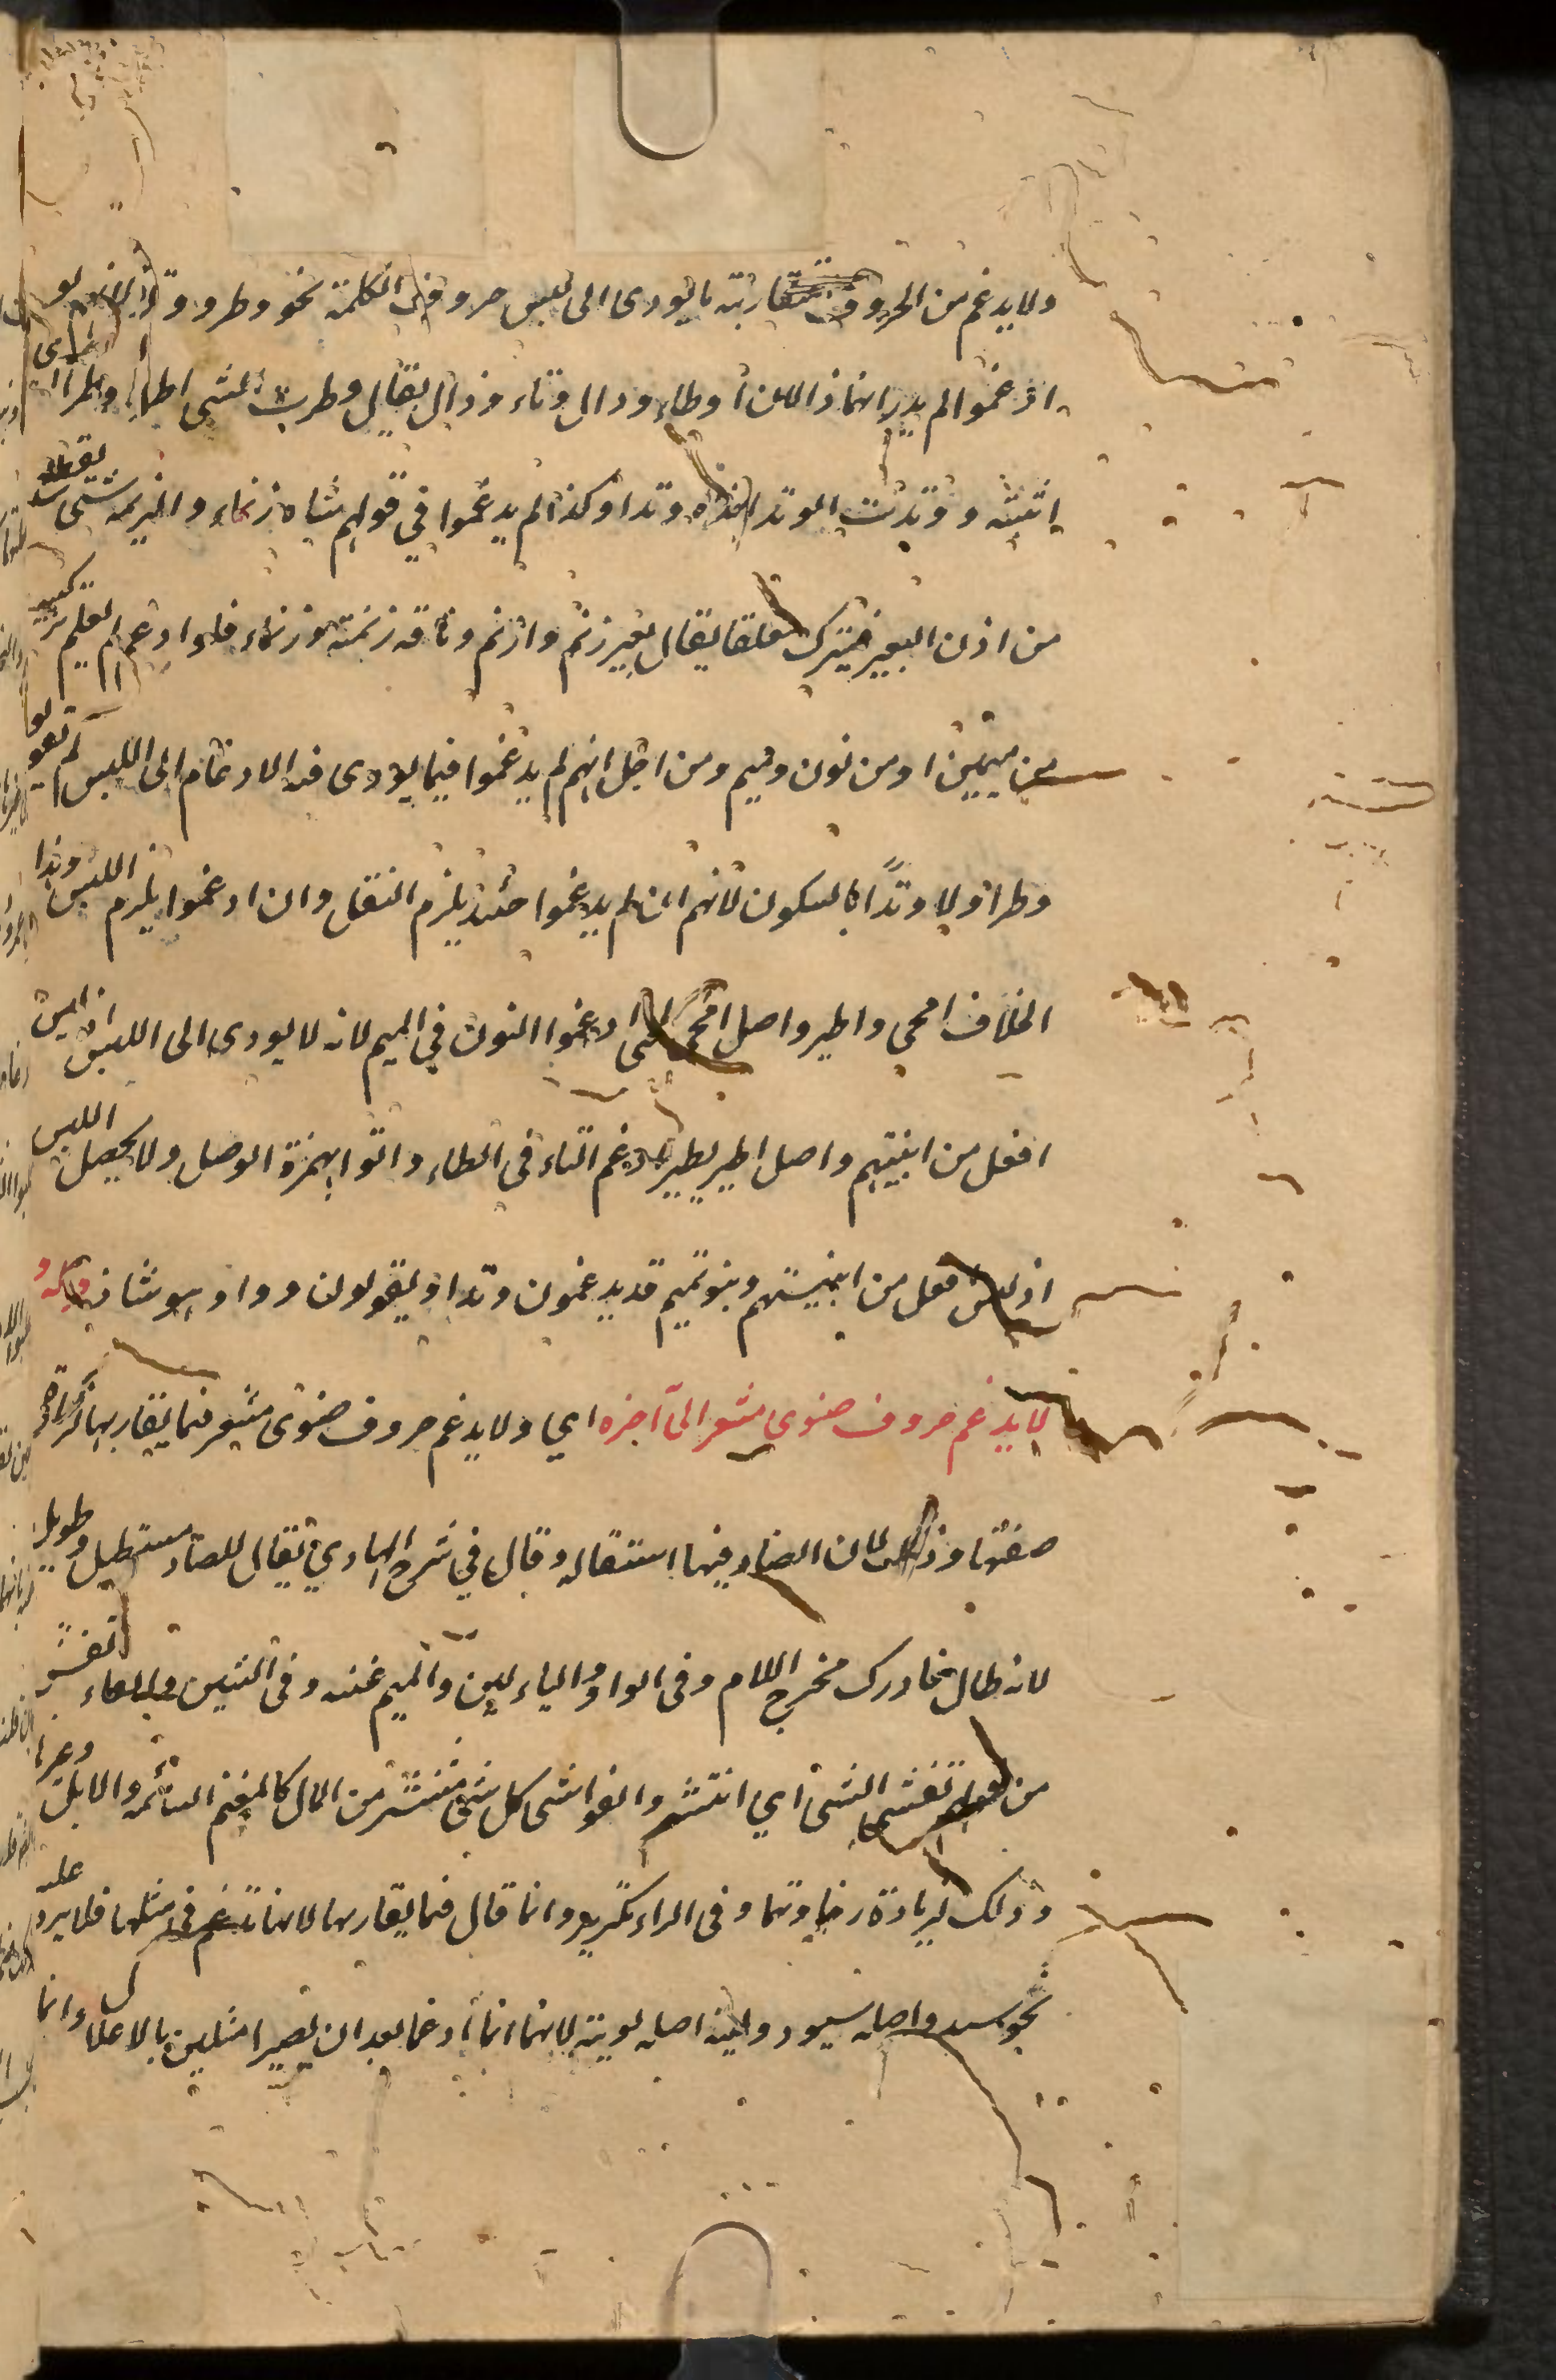 ولا يدغم من الحروف متقاربة ما يودى الى لبس حروف فى الكلمة نحو وطر ووتد لانهم لو
ادغموا لم يدر انهما دالان او طاء ودال وتاء ودال يقال وطرت الشى اطاء وطرا اى
اثبته ووتدت الوتد اتده وتدا وكذا لم يدغموا في قولهم شاه زنماء والزنمة شى يقطع
من اذن البعير فيترك معلقا يقال بعير زنم وازنم وناقه زنمة وزنماء فلو ادغم لم يعلم تركيبه
من ميمين او من نون وميم ومن اجل انهم لم يدغموا فيما يودى فيه الادغام الى اللبس لم يقولوا
وطرا ولا وتدًا بالسكون لانهم ان لم يدغموا حئنذ يلزم الثقل وان ادغموا يلزم اللبس وهذا
الخلاف امحى واطير واصل امحى انمحى ادغموا النون في الميم لانه لا يودى الى اللبس اذ ليس
افعل من ابنيتهم واصل اطير تطير ادغم التاء فى الطاء واتوا بهمزة الوصل ولا يحصل اللبس
اذ ليس فعل من ابنيتهم وبنو تميم قد يدغمون وتدا ويقولون ودا وهو شاذ قوله و
لا يدغم حروف ضوى مشفر الى آخره اي ولا يدغم حروف ضوى مشفر فيما يقاربها لزيادة
صفتها وذلك لان الضاد فيها استطالة وقال في شرح الهادي يقال للضاد مستطيل وطويل
لانه طال فادرك مخرج اللام وفى الواو والياء لين والميم غنه وفى الشين والفاء تفشى
من قولهم تفشى الشى اي انتشر والفواشى كل شى منتشر من المال كالغنم السائمه والابل وغيرها
وذلك لزيادة رخاوتهما وفى الراء تكرير وانما قال فيما يقاربها لانها تدغم فى مثلها فلا يرد عليه
نحو سيد واصله سيود ولية اصله لوية لانهما انما ادغما بعد ان يصيرا مثلين بالاعلال وانما